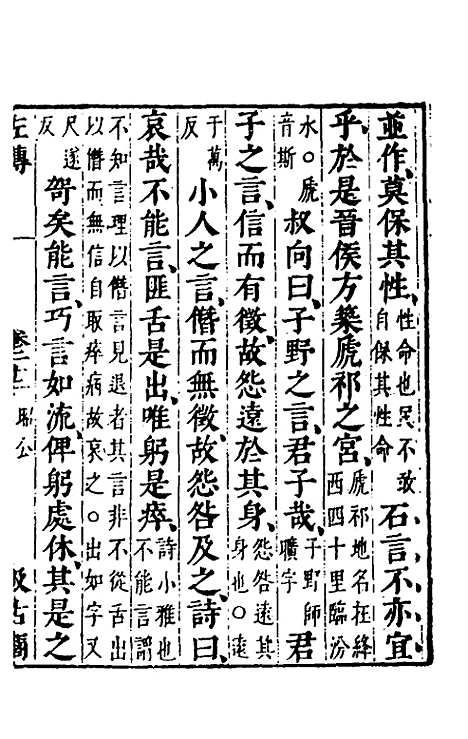 並作、莫保其性、性命也民不敢自保其性命石言不亦宜
乎、於是晉侯方築虒祁之宮、虒祁地名在絳西四十里臨汾
水○虒音斯叔向曰、子野之言、君子哉、子野師曠字君
子之言、信而有徵、故怨遠於其身、怨咎遠其身也○遠
于萬反小人之言、僭而無徵、故怨咎及之、詩曰、
哀哉不能言、匪舌是出、唯躬是瘁、詩小雅也不能言謂
不知言理以僭言見退者其言非不從舌出以僭而無信自取瘁病故哀之○出如字又
尺遂反哿矣能言、巧言如流、俾躬處休、其是之
左傳 一 卷二十二 昭公 汲古閣